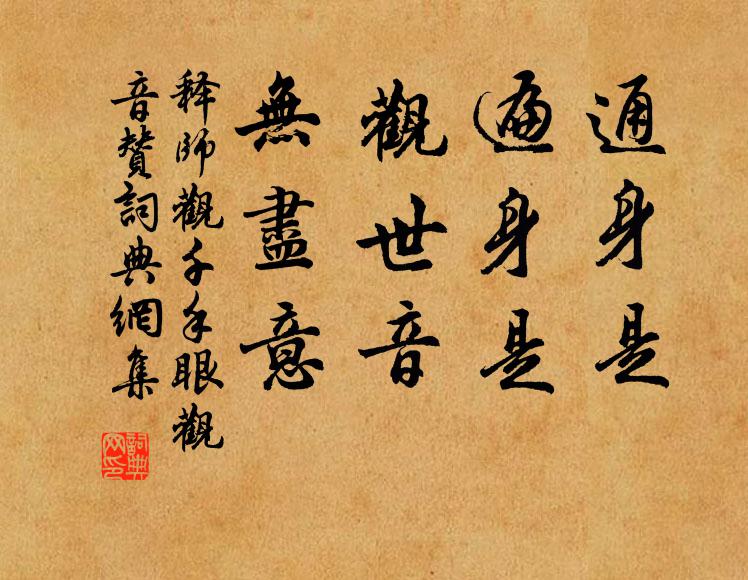 通身是
遍身是
觀世音
無盡意
释師觀千手眼觀
音贊詞典網集
詞典网印